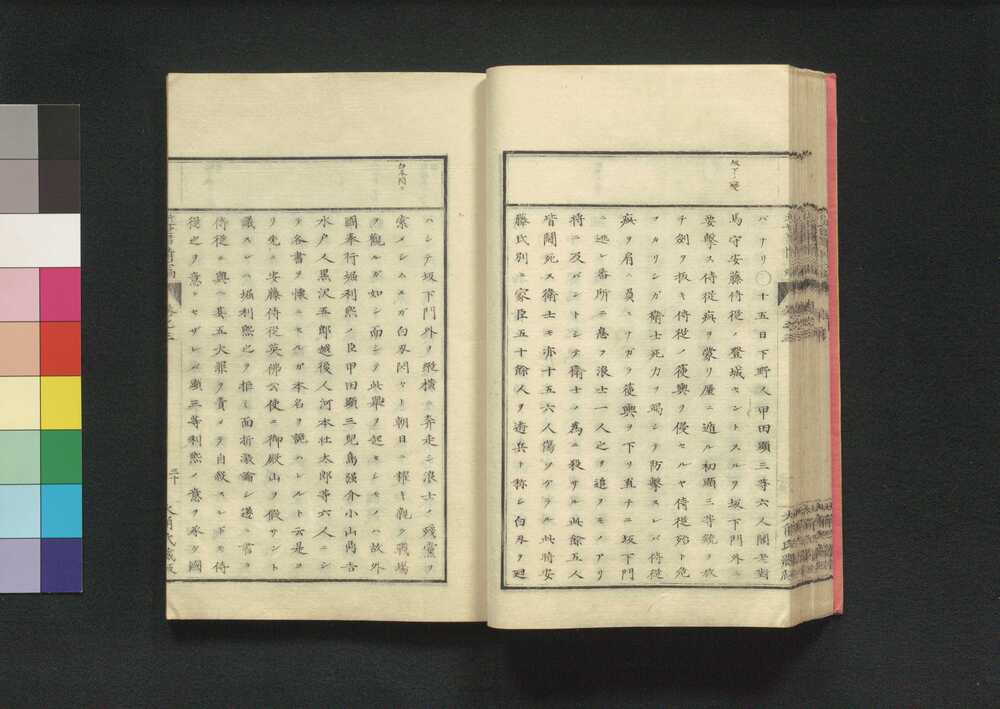 坂下ノ變
バナリ〇十五日下野人甲田顯三等六人閣老對
馬守安藤侍從ノ登城セントスルヲ坂下門外ニ
要撃ス侍從疵ヲ蒙リ僅ニ遁ル初顯三等銃ヲ放
チ劍ヲ拔キ侍從ノ篷輿ヲ侵セルヤ侍從殆ト危
フカリシガ衛士死力ヲ竭シテ防撃スレバ侍從
疵ヲ肩ニ負ヒナガラ篷輿ヲ下リ直チニ坂下門
ニ逃レ番所ニ憩フ浪士一人之ヲ追フモノアリ
將ニ及バントシテ衛士ノ爲ニ殺サル此餘五人
皆鬪死ス衛士モ亦十五六人傷ツケラル此時安
藤氏別ニ家臣五十餘人ヲ遊兵ト称シ白刄ヲ廻
白刄閃々
ハシテ坂下門外ヲ縱横ニ奔走シ浪士ノ殘黨ヲ
索メシムユヘ白刄閃々ト朝日ニ耀キ親ク戰場
ヲ觀ルガ如シ而シテ此擧ヲ起セシモノハ故外
國奉行堀利熙ノ臣甲田顯三兒島强介小山尚吉
水戸人黒沢五郎越後人河本杜太郎等六人ニシ
テ各書ヲ懷ニセルガ本名ヲ記ハレルト云是ヨ
リ先キ安藤侍從英佛公使ニ御殿山ヲ假サント
議スレハ堀利熙之ヲ拒ミ面折激論シ遂ニ書ヲ
侍從ニ與ヘ其五大罪ヲ責メテ自殺スレドモ侍
從之ヲ意トセザレバ顯三等利熙ノ意ヲ承ケ國
三十